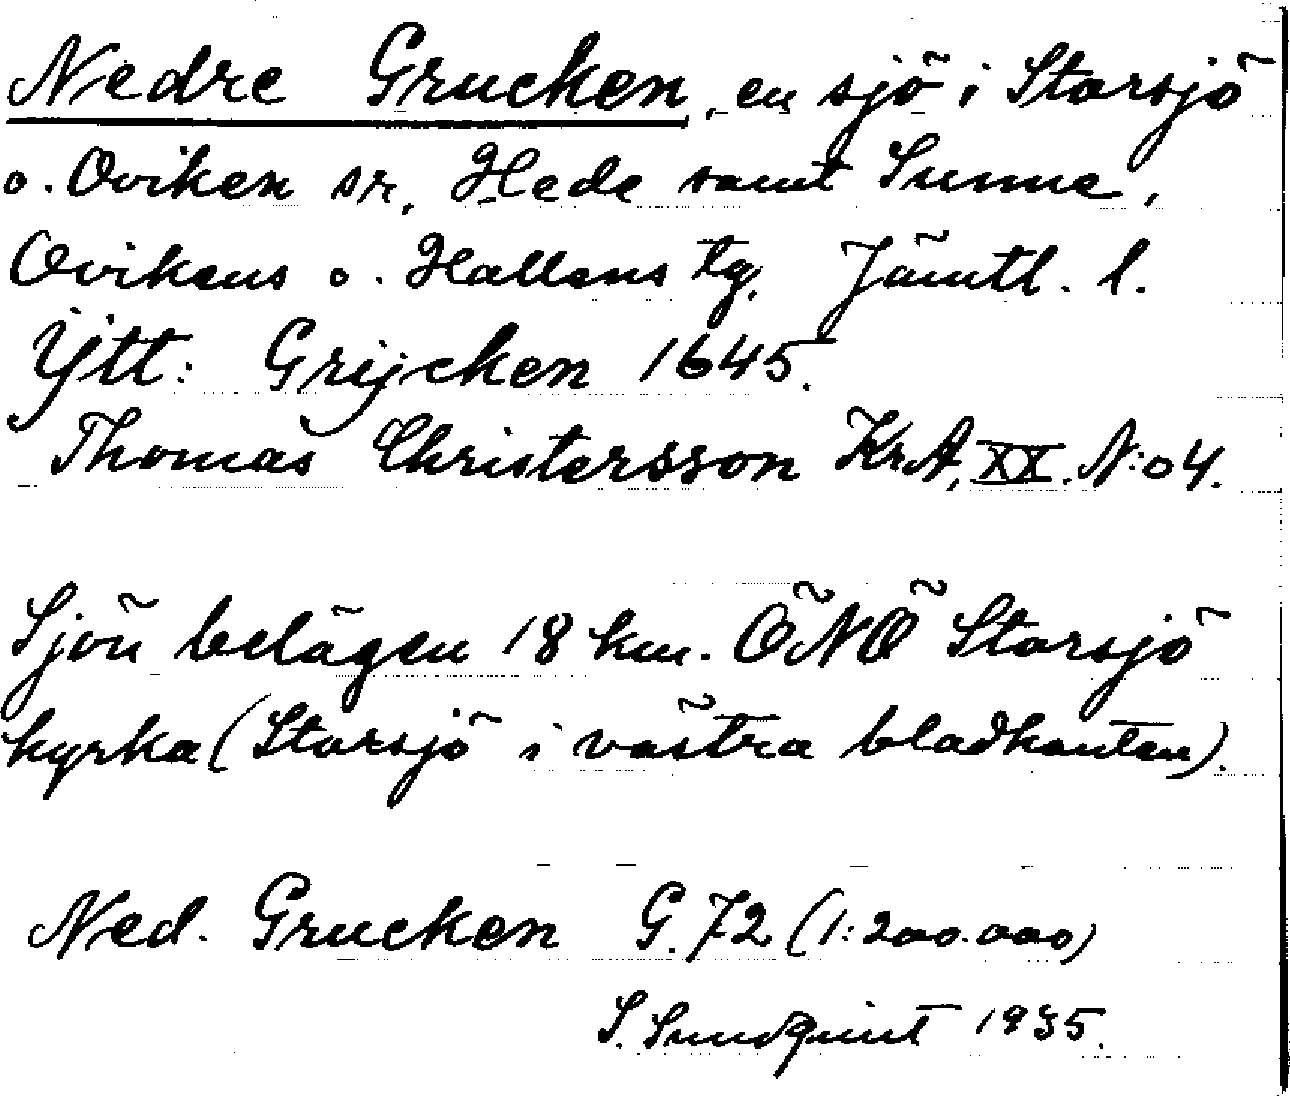 Nedre Grucken, en sjö i Storsjö
o. Oviken sr, Hede samt Sunne,
Ovikens o. Hallens tg. Jämtl. l.
Ytt: Grijcken 1645.
Thomas Christersson Kr.A, XX. N:o 4.
Sjön belägen 18 km. ÖNÖ Storsjö
kyrka (Storsjö i västra bladkanten).
Ned. Grucken G. 72 (1:200.000)
S. Sundquist 1935.